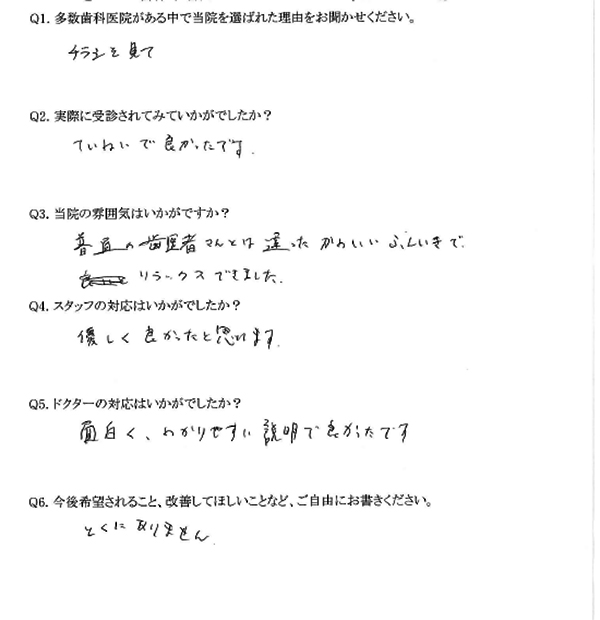 Q1. 多数歯科医院がある中で当院を選ばれた理由をお聞かせください。
チラシを見て
Q2. 実際に受診されてみていかがでしたか?
ていねいで良かったです。
Q3. 当院の雰囲気はいかがですか?
普通の歯医者さんとは違ったかわいいふんいきで
リラックスできました。
Q4. スタッフの対応はいかがでしたか?
優しく良かったと思います。
Q5. ドクターの対応はいかがでしたか?
面白く、わかりやすい説明で良かったです
Q6. 今後希望されること、改善してほしいことなど、ご自由にお書きください。
とくにありません